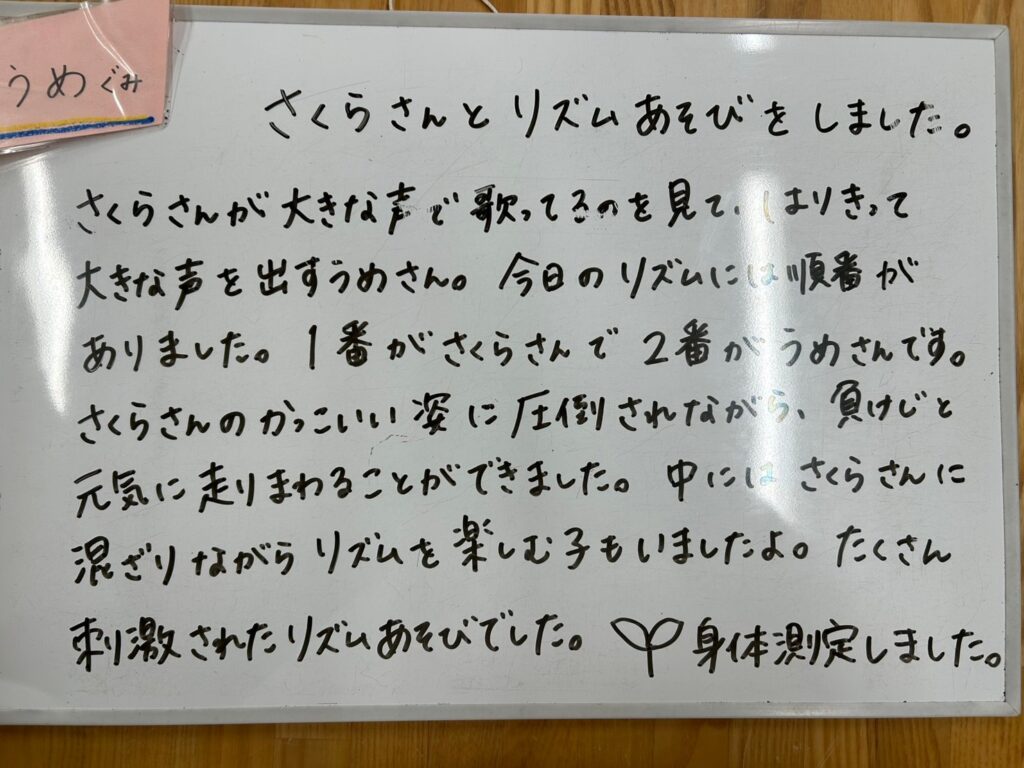 うめぐみ
さくらさんとリズムあそびをしました。
さくらさんが大きな声で歌ってるのを見て、はりきって
大きな声を出すうめさん。今日のリズムには順番が
ありました。1番がさくらさんで2番がうめさんです。
さくらさんのかっこいい姿に圧倒されながら、負けじと
元気に走りまわることができました。中にはさくらさんに
混ざりながらリズムを楽しむ子もいましたよ。たくさん
刺激されたリズムあそびでした。 身体測定しました。